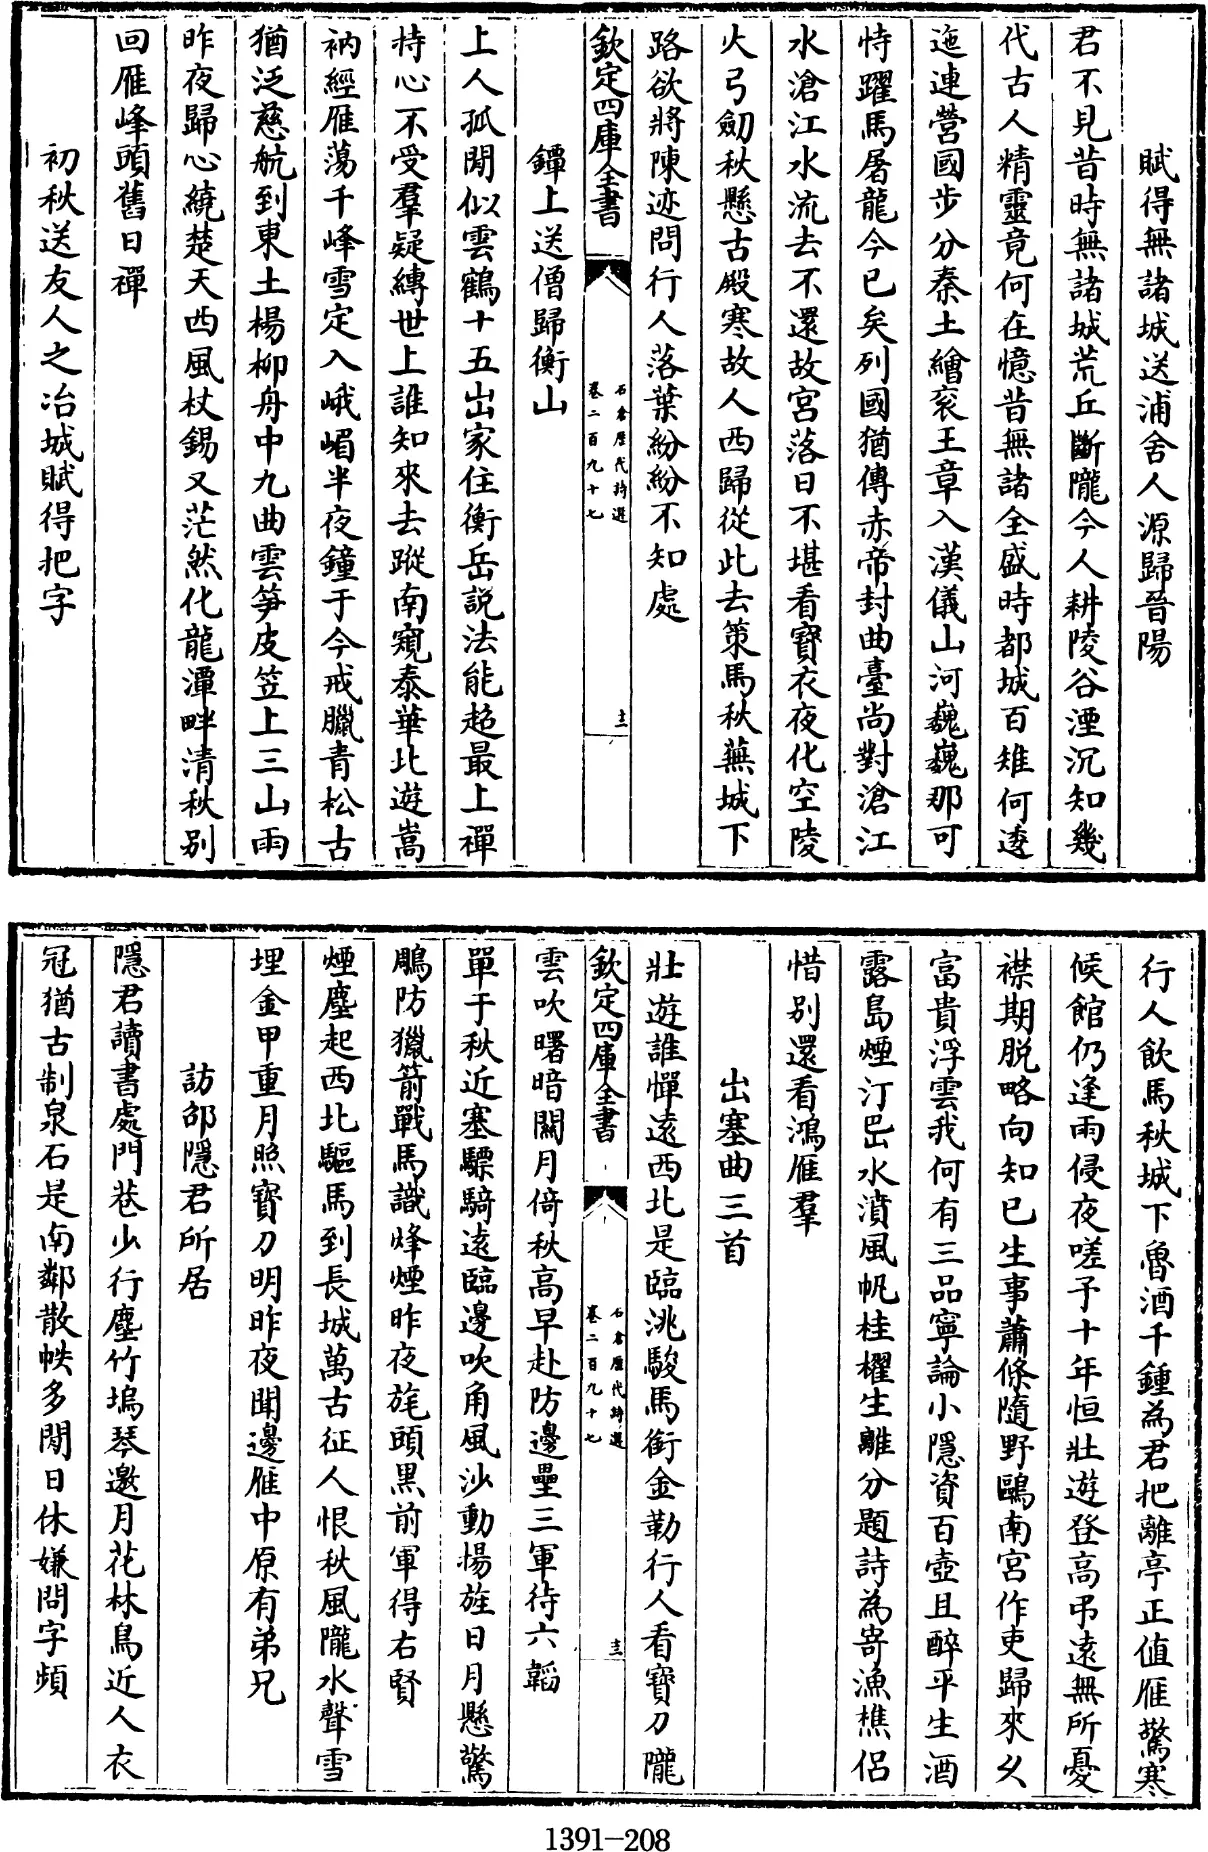 賦得無諸城送浦舍人源歸晉陽
君不見昔時無諸城荒丘斷隴今人耕陵谷湮沉知幾
代古人精靈竟何在憶昔無諸全盛時都城百雉何逶
迤連營國步分秦土繪衮王章入漢儀山河巍巍那可
恃躍馬屠龍今已矣列國猶傳赤帝封曲臺尚對滄江
水滄江水流去不還故宮落日不堪看寳衣夜化空陵
火弓劒秋懸古殿寒故人西歸從此去策馬秋蕪城下
路欲將陳迹問行人落葉紛紛不知處
欽定四庫全書
石倉歴代詩選
卷二百九十七
鐔上送僧歸衡山
上人孤閒似雲鶴十五出家住衡岳説法能超最上禪
持心不受羣疑縛世上誰知來去蹤南窺泰華北遊嵩
衲經雁蕩千峰雪定入峨嵋半夜鐘于今戒臘青松古
猶泛慈航到東土楊柳舟中九曲雲笋皮笠上三山雨
昨夜歸心繞楚天西風杖錫又茫然化龍潭畔清秋别
回雁峰頭舊日禪
初秋送友人之冶城賦得把字
行人飲馬秋城下魯酒千鍾為君把離亭正值雁驚寒
候館仍逢雨侵夜嗟予十年恒壯遊登高弔遠無所憂
襟期脱略向知已生事蕭條隨野鷗南宮作吏歸來久
富貴浮雲我何有三品寧論小隠資百壺且醉平生酒
露島煙汀出水濆風帆桂櫂生離分題詩為寄漁樵侣
惜别還看鴻雁羣
出塞曲三首
壯遊誰憚遠西北是臨洮駿馬銜金勒行人看寳刀隴
欽定四庫全書
石倉歴代詩選
卷二百九十七
雲吹曙暗關月倚秋高早赴防邊壘三軍待六韜
單于秋近塞驃騎遠臨邊吹角風沙動揚旌日月懸驚
鵰防獵箭戰馬識烽煙昨夜旄頭黒前軍得右賢
煙塵起西北驅馬到長城萬古征人恨秋風隴水聲雪
埋金甲重月照寳刀明昨夜聞邊雁中原有弟兄
訪邵隱君所居
隱君讀書處門巷少行塵竹塢琴邀月花林鳥近人衣
冠猶古制泉石是南鄰散帙多閒日休嫌問字頻
1391-208